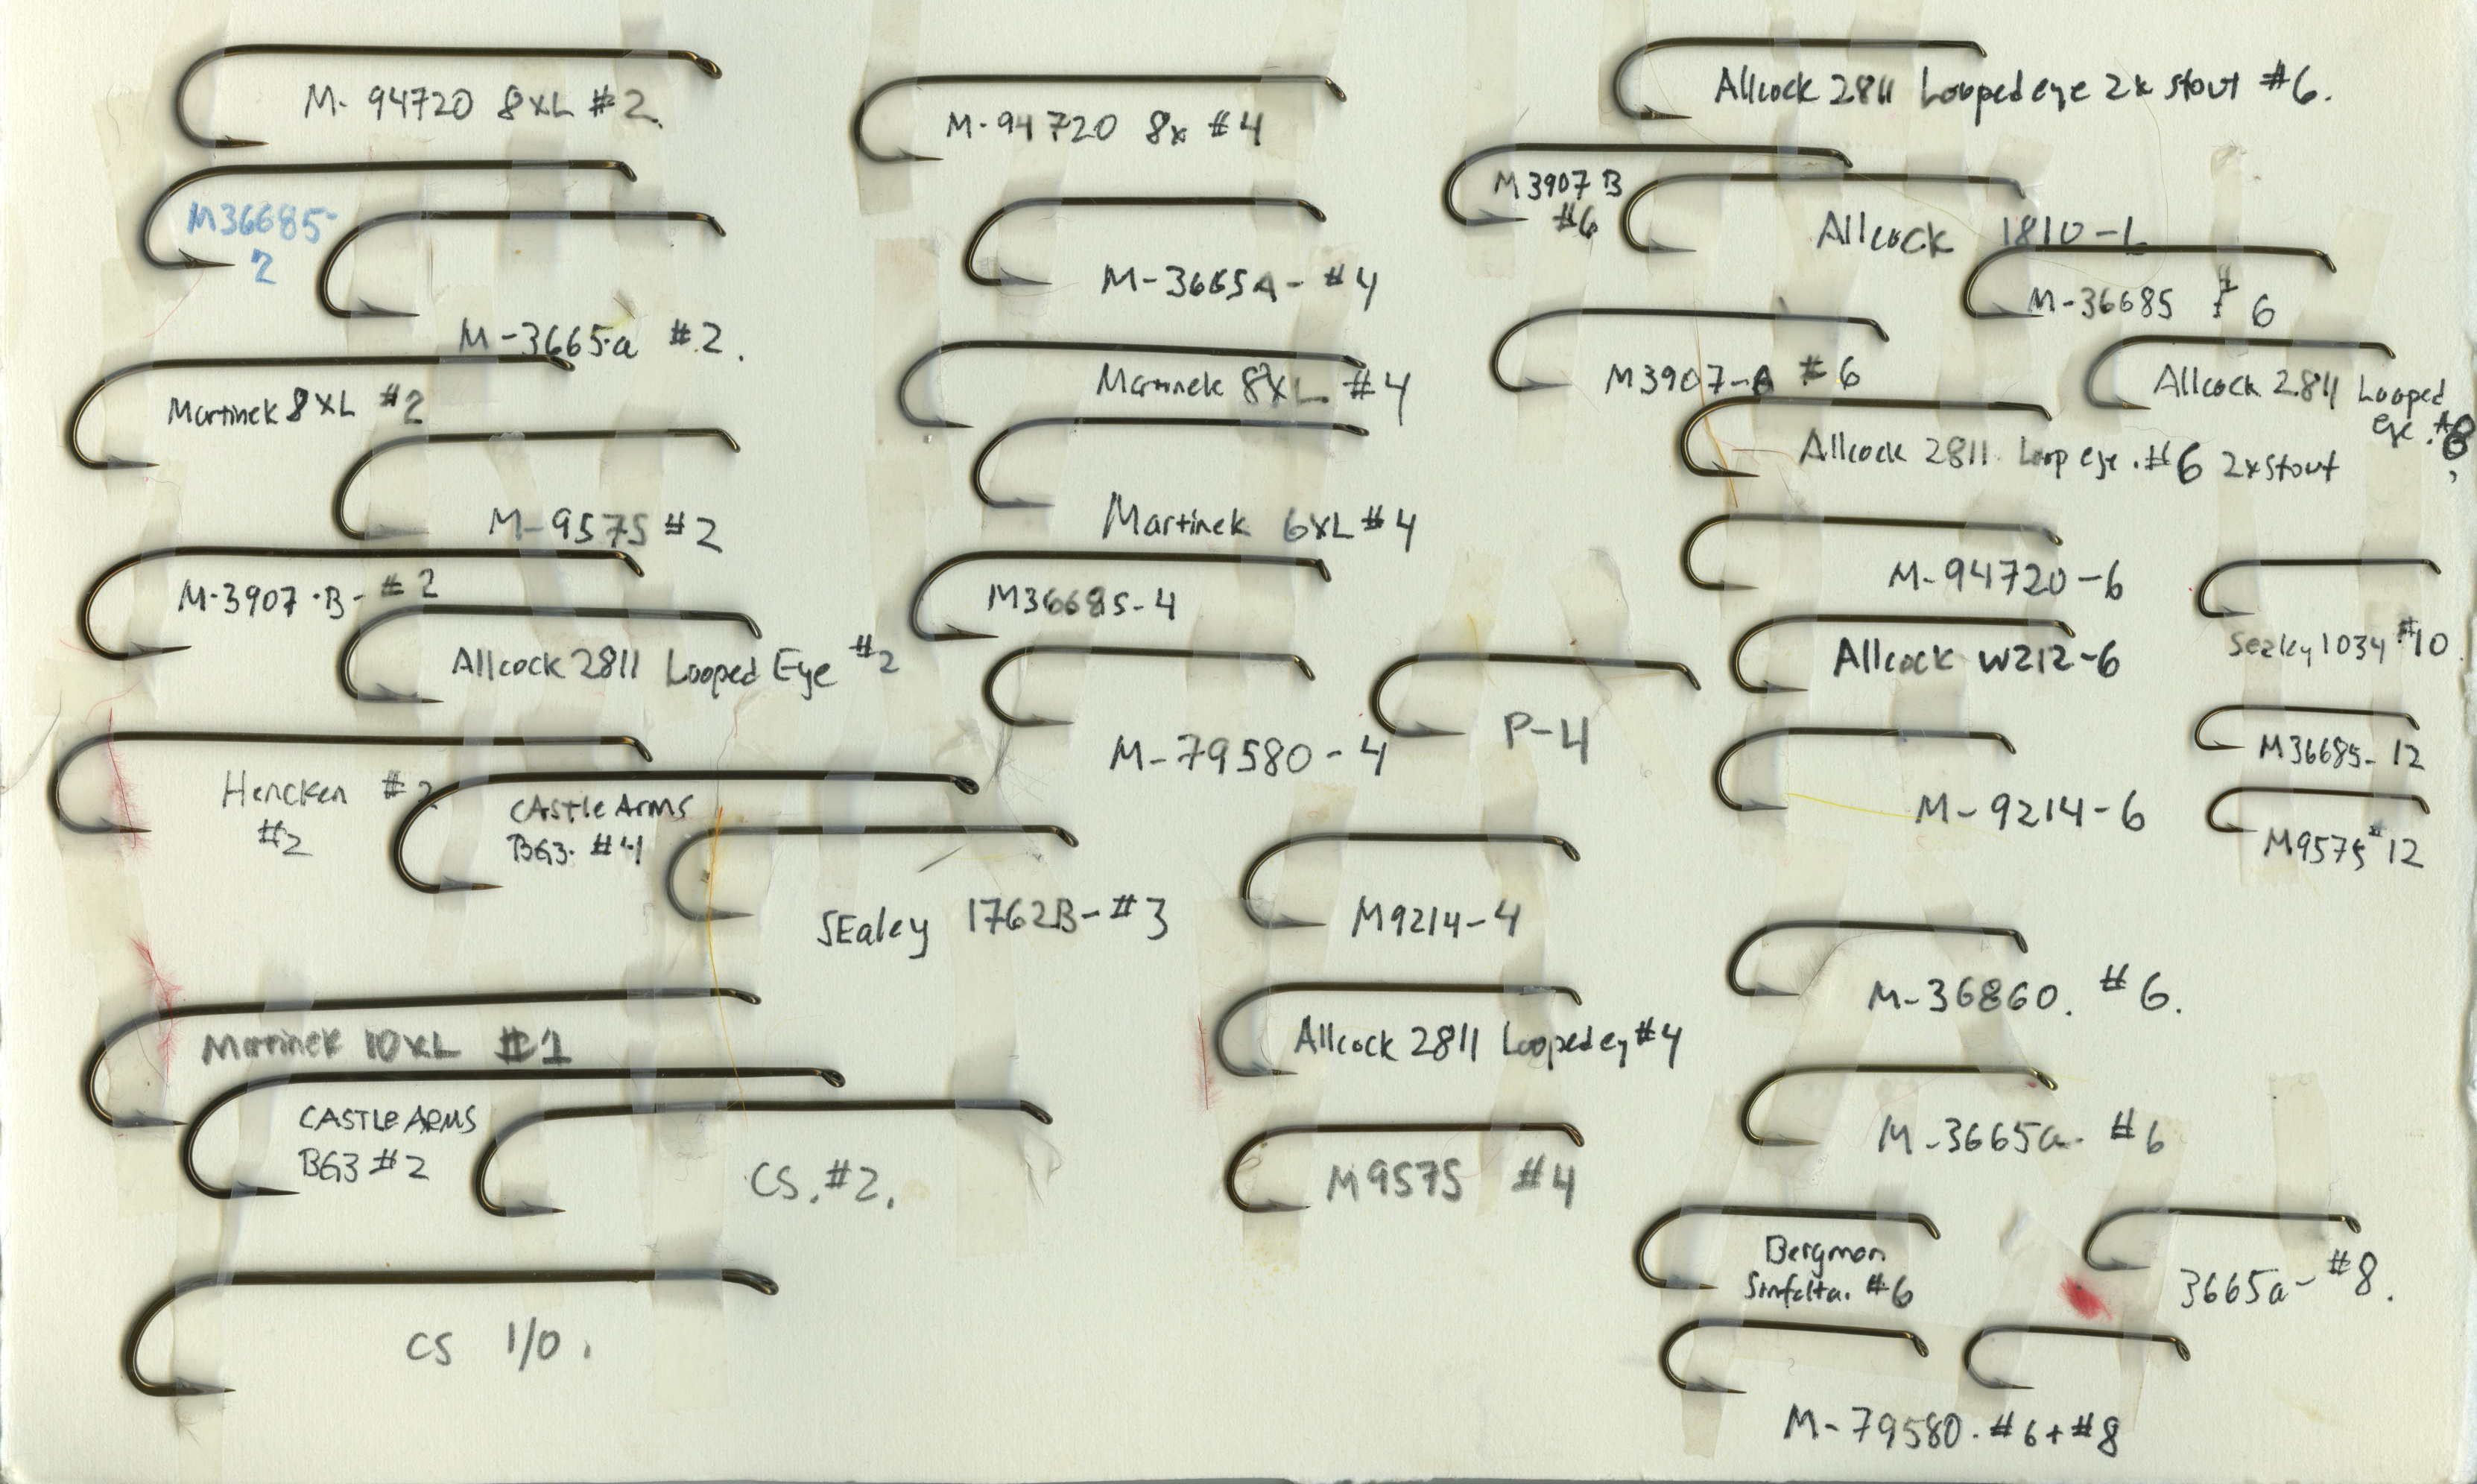 M- 94720 8XL #2.
M36685-
2
M-3665-a #2.
Martinek 8XL #2
M-9575 #2
M-3907-B- #2
Allcock 2811 Looped Eye #2
Hencken #2
#2
CAstle ArMS
BG3- #4
SEaley 1762B-#3
Martinek 10XL #1
CASTLE ARMS
BG3 #2
CS. #2.
CS 1/0.
M-94720 8x #4
M-3665A- #4
Martinek 8XL #4
Martinek 6XL #4
M36685-4
M-79580-4
P-4
M9214-4
Allcock 2811 Looped ey #4
M9575 #4
Allcock 2811 Looped eye 2x stout #6.
M3907 B
#6
Allcock 1810-L
M-36685 # 6
M3907-A #6
Allcock 2811 Looped
eye. #8
Allcock 2811 Loop eye. #6 2xstout
M-94720-6
Sealey 1034 #10
Allcock W212-6
M36685-12
M-9214-6
M9575 #12
M-36860. #6.
M-3665a- #6
Bergman
#6
3665a- #8.
M-79580. #6+#8